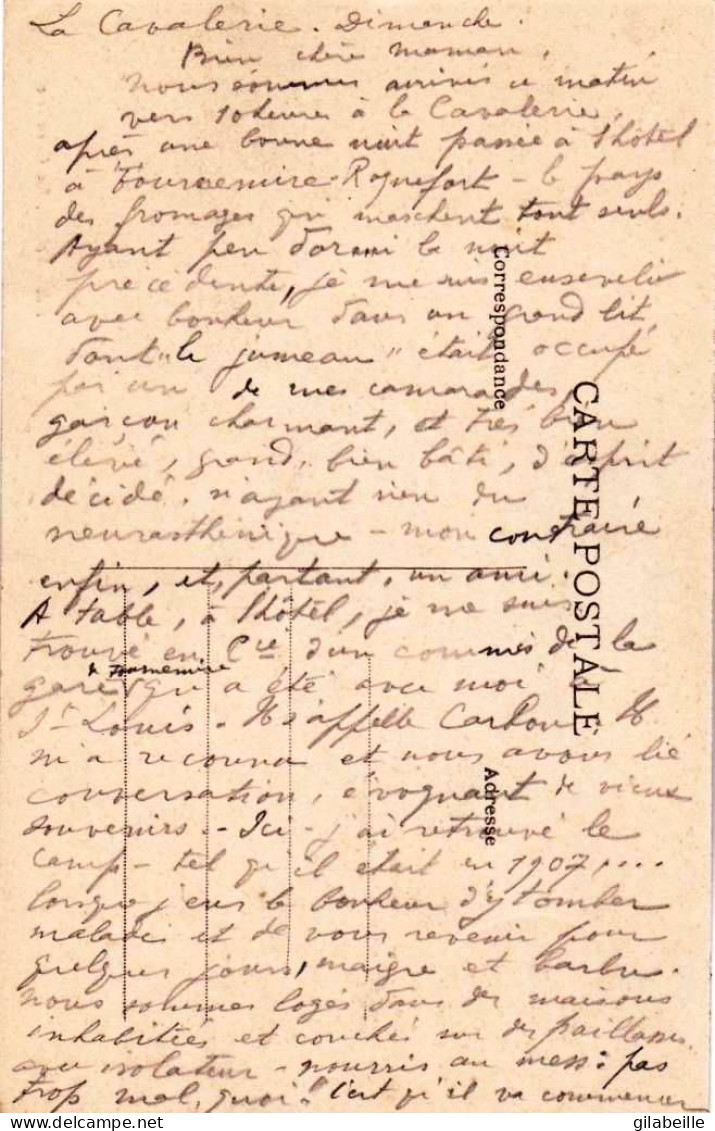 La Cavalerie. Dimanche.
Bien chère maman,
Nous sommes arrivés ce matin
vers 10 heures à la Cavalerie,
après une bonne nuit passée à l'hôtel
à Tournemire-Roquefort - le pays
des fromages qui marchent tout seuls.
Ayant peu dormi la nuit
précédente, je me suis enseveli
avec bonheur dans un grand lit
dont "le jumeau" était occupé
par un de mes camarades,
garçon charmant, et très bien
élevé, grand, bien bâti, d'esprit
décidé, n'ayant rien du
neurasthénique - mon contraire
enfin, et, partant, un ami.
A table, à l'hôtel, je me suis
trouvé en Cie d'un commis de la
gare de Tournemire qui a été avec moi
St Louis. Il s'appelle Il
m'a reconnu et nous avons lié
conversation, évoquant de vieux
souvenirs. - Ici - j'ai retrouvé le
camp - tel qu'il était en 1907, ....
lorsque j'eus le bonheur d'y tomber
malade et de vous revenir pour
quelques jours, maigre et barbu.
Nous sommes logés dans des maisons
inhabitées et couchés sur des paillasses
avec isolateur - nourris au mess: pas
trop mal, quoi!! C'est qu'il va commencer
Correspondance
CARTE POSTALE
Adresse
delcampe.net
gilabeille